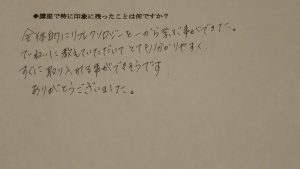 ◆講座で特に印象に残ったことは何ですか？
全体的にリフレクソロジーを一から学ぶ事ができた。
ていねいに教えていただいてとても分かりやすく、
すぐに取り入れる事ができそうです。
ありがとうございました。